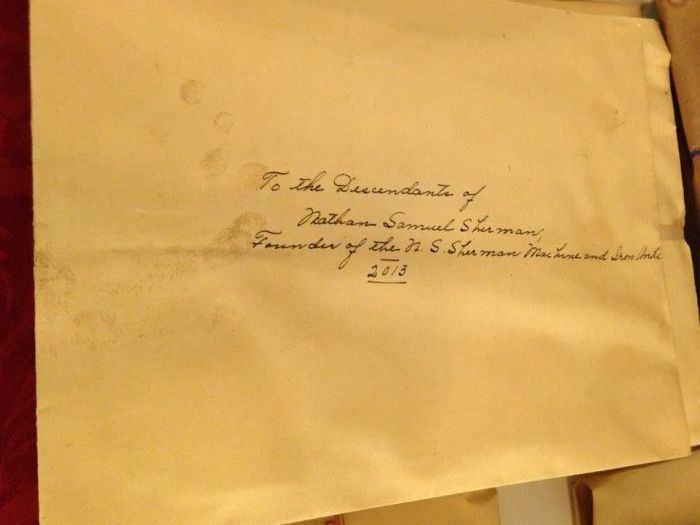 To the Descendants of
Nathan Samuel Sherman,
Founder of the N. S. Sherman Machine and Iron Works
2013